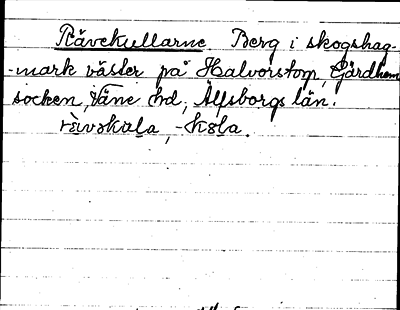 Rävekullarne. Berg i skogshag-
-mark väster på Halvorstorp, Gärdhem
socken, Väne hd, Älfsborgs län.